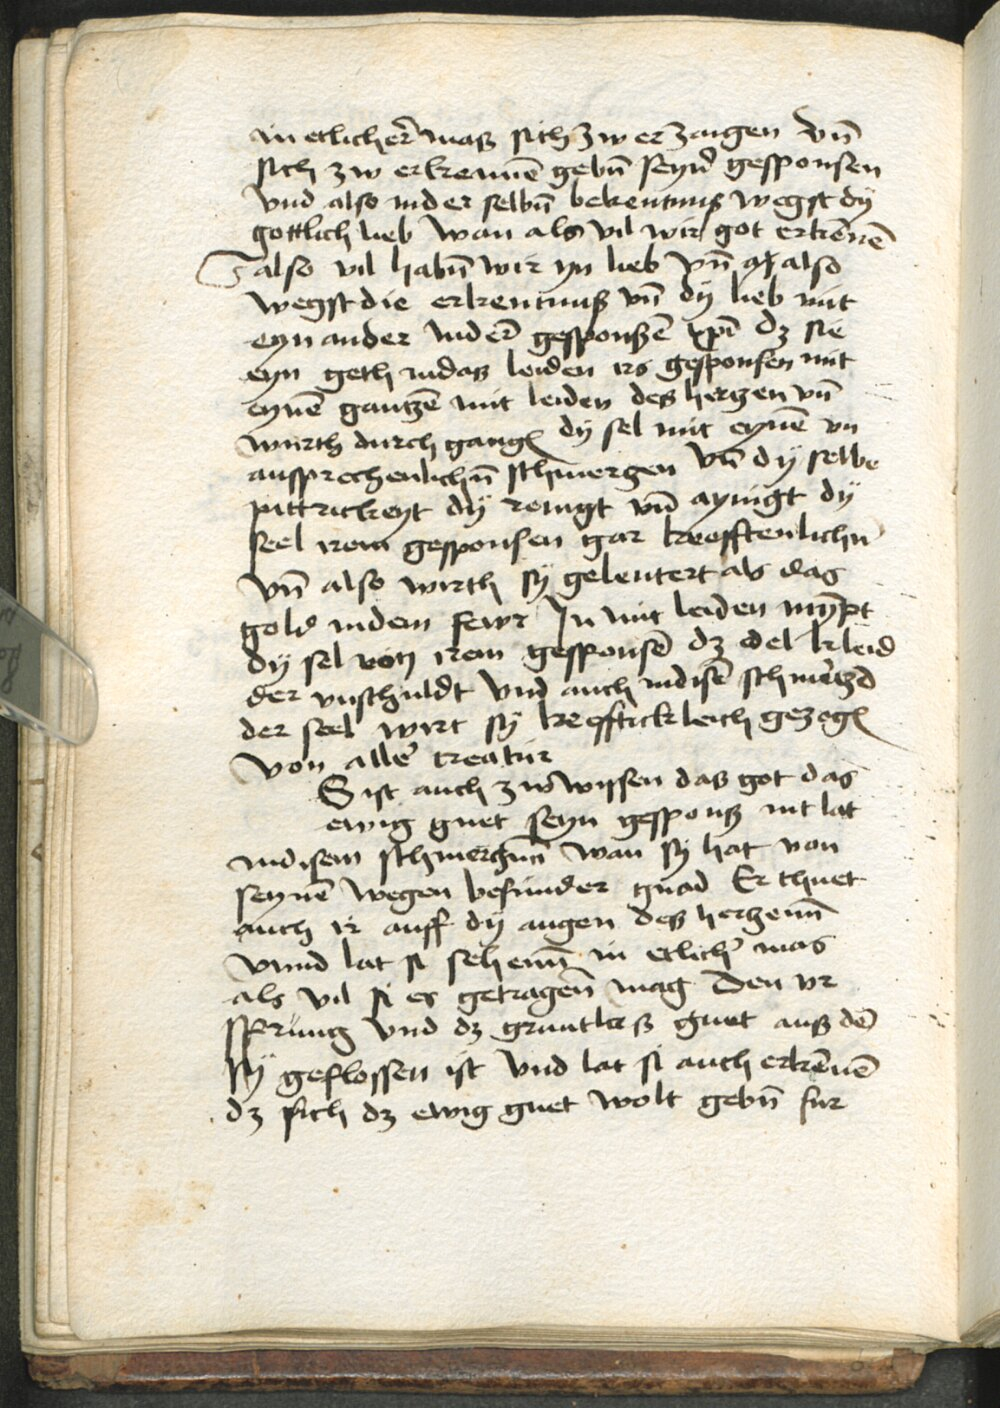 in etlicher̄ masz sich zw erzaigen vn̄
sich zw erkennē gebn̄ seyn̄ gesponsen
vnd also inder selbn̄ bekentnus wegst dÿ
gottlich lieb wan als vil wir got erkēnē
also vil habn̄ wir yn lieb vn̄ also
wegst die erkentnusz vn̄ dÿ lieb mit
eynander inder̄ gesponszē xp̄i dz sie
eyn geth indasz leiden irs gesponsen mit
eynē gantzē mit leiden desz hertzen vn̄
wirth durch gangen dÿ sel mit eynē vn
ausprechenlichn̄ schmertzen vn̄ dÿ selbe
pittrickeyt dÿ reinigt vn̄ aynigt dÿ
seel irem gesponsen gar krefftenlichn̄
vn̄ also wirth sÿ geleutert als das
gold indem fewr In mit leiden nymp̄t
dÿ sel von irem gesponsē dz edel kleid
der vnschuldt vnd auch indisē schmertzn̄
der seel wirt sÿ krefftickleich gezogen
von aller creatur
S ist auch zw wissen dasz got das
ewig guet seyn gesponsz nit lat
indisem schmertzn̄ wan sÿ hat von
seynē wegen besunder gnad Er thuet
auch ir auff dÿ augen desz hertzenn̄
vnnd lat si sehenn̄ in etlicher mas
als vil si es getragen̄ mag Den vr
sprung vnd dz gruntlosz guet ausz dē
sÿ geflossen ist vnd lat si auch erkēnē
dz sich dz ewig guet wolt gebn̄ fur